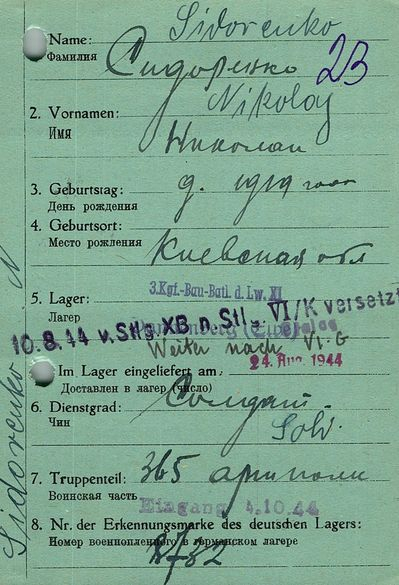 Sidorenko
Name:
Фамилия
Сидоренко
2B
Nikolaj
2. Vornamen:
Имя
Николай
3. Geburtstag:
День рождения
д. 1919 года
4. Geburtsort:
Место рождения
Киевская обл
5. Lager:
Лагерь
3.Kgf.-Bau-Batl.d.Lw.XI
10.8.44 v. Stlg. XB n. Stlg. VI/K versetzt
(Elbe)
Weiter nach VI-G
24. Aug. 1944
Im Lager eingeliefert am:
Доставлен в лагерь (число)
6. Dienstgrad:
Чин
Солдат
Sold.
7. Truppenteil:
Воинская часть
365 арт полк
Eingang 4.10.44
8. Nr. der Erkennungsmarke des deutschen Lagers:
Номер военнопленного в германском лагере
Sidorenko N